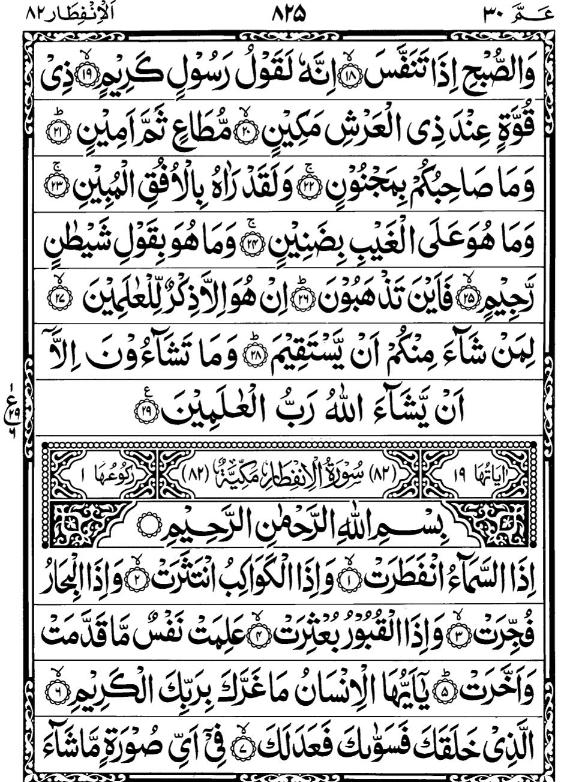 عـمّ ٣٠ ٨٢٥ الانفطار ٨٢
وَالصُّبْحِ اِذَا تَنَفَّسَ ۙ﴿۱۸﴾ اِنَّهٗ لَقَوْلُ رَسُوْلٍ كَرِيْمٍ ۙ﴿۱۹﴾ ذِىْ
قُوَّةٍ عِنْدَ ذِى الْعَرْشِ مَكِيْنٍ ۙ﴿۲۰﴾ مُّطَاعٍ ثَمَّ اَمِيْنٍ ؕ﴿۲۱﴾
وَمَا صَاحِبُكُمْ بِمَجْنُوْنٍ ۚ﴿۲۲﴾ وَلَقَدْ رَاٰهُ بِالْاُفُقِ الْمُبِيْنِ ۚ﴿۲۳﴾
وَمَا هُوَ عَلَى الْغَيْبِ بِضَنِيْنٍ ۚ﴿۲۴﴾ وَمَا هُوَ بِقَوْلِ شَيْطٰنٍ
رَّجِيْمٍ ۙ﴿۲۵﴾ فَاَيْنَ تَذْهَبُوْنَ ؕ﴿۲۶﴾ اِنْ هُوَ اِلَّا ذِكْرٌ لِّلْعٰلَمِيْنَ ۙ﴿۲۷﴾
لِمَنْ شَآءَ مِنْكُمْ اَنْ يَّسْتَقِيْمَ ؕ﴿۲۸﴾ وَمَا تَشَآءُوْنَ اِلَّاۤ
اَنْ يَّشَآءَ اللّٰهُ رَبُّ الْعٰلَمِيْنَ ﴿۲۹﴾ع
١
ع
٢٩
٦
اٰيَاتُهَا ١٩ (٨٢) سُوْرَةُ الْاِنْفِطَارِ مَكِّيَّةٌ (٨٢) رُكُوْعُهَا ١
بِسْمِ اللّٰهِ الرَّحْمٰنِ الرَّحِيْمِ
اِذَا السَّمَآءُ انْفَطَرَتْ ۙ﴿۱﴾ وَاِذَا الْكَوَاكِبُ انْتَثَرَتْ ۙ﴿۲﴾ وَاِذَا الْبِحَارُ
فُجِّرَتْ ۙ﴿۳﴾ وَاِذَا الْقُبُوْرُ بُعْثِرَتْ ۙ﴿۴﴾ عَلِمَتْ نَفْسٌ مَّا قَدَّمَتْ
وَاَخَّرَتْ ؕ﴿۵﴾ يٰۤاَيُّهَا الْاِنْسَانُ مَا غَرَّكَ بِرَبِّكَ الْكَرِيْمِ ۙ﴿۶﴾
الَّذِىْ خَلَقَكَ فَسَوّٰىكَ فَعَدَلَكَ ۙ﴿۷﴾ فِىْۤ اَىِّ صُوْرَةٍ مَّا شَآءَ